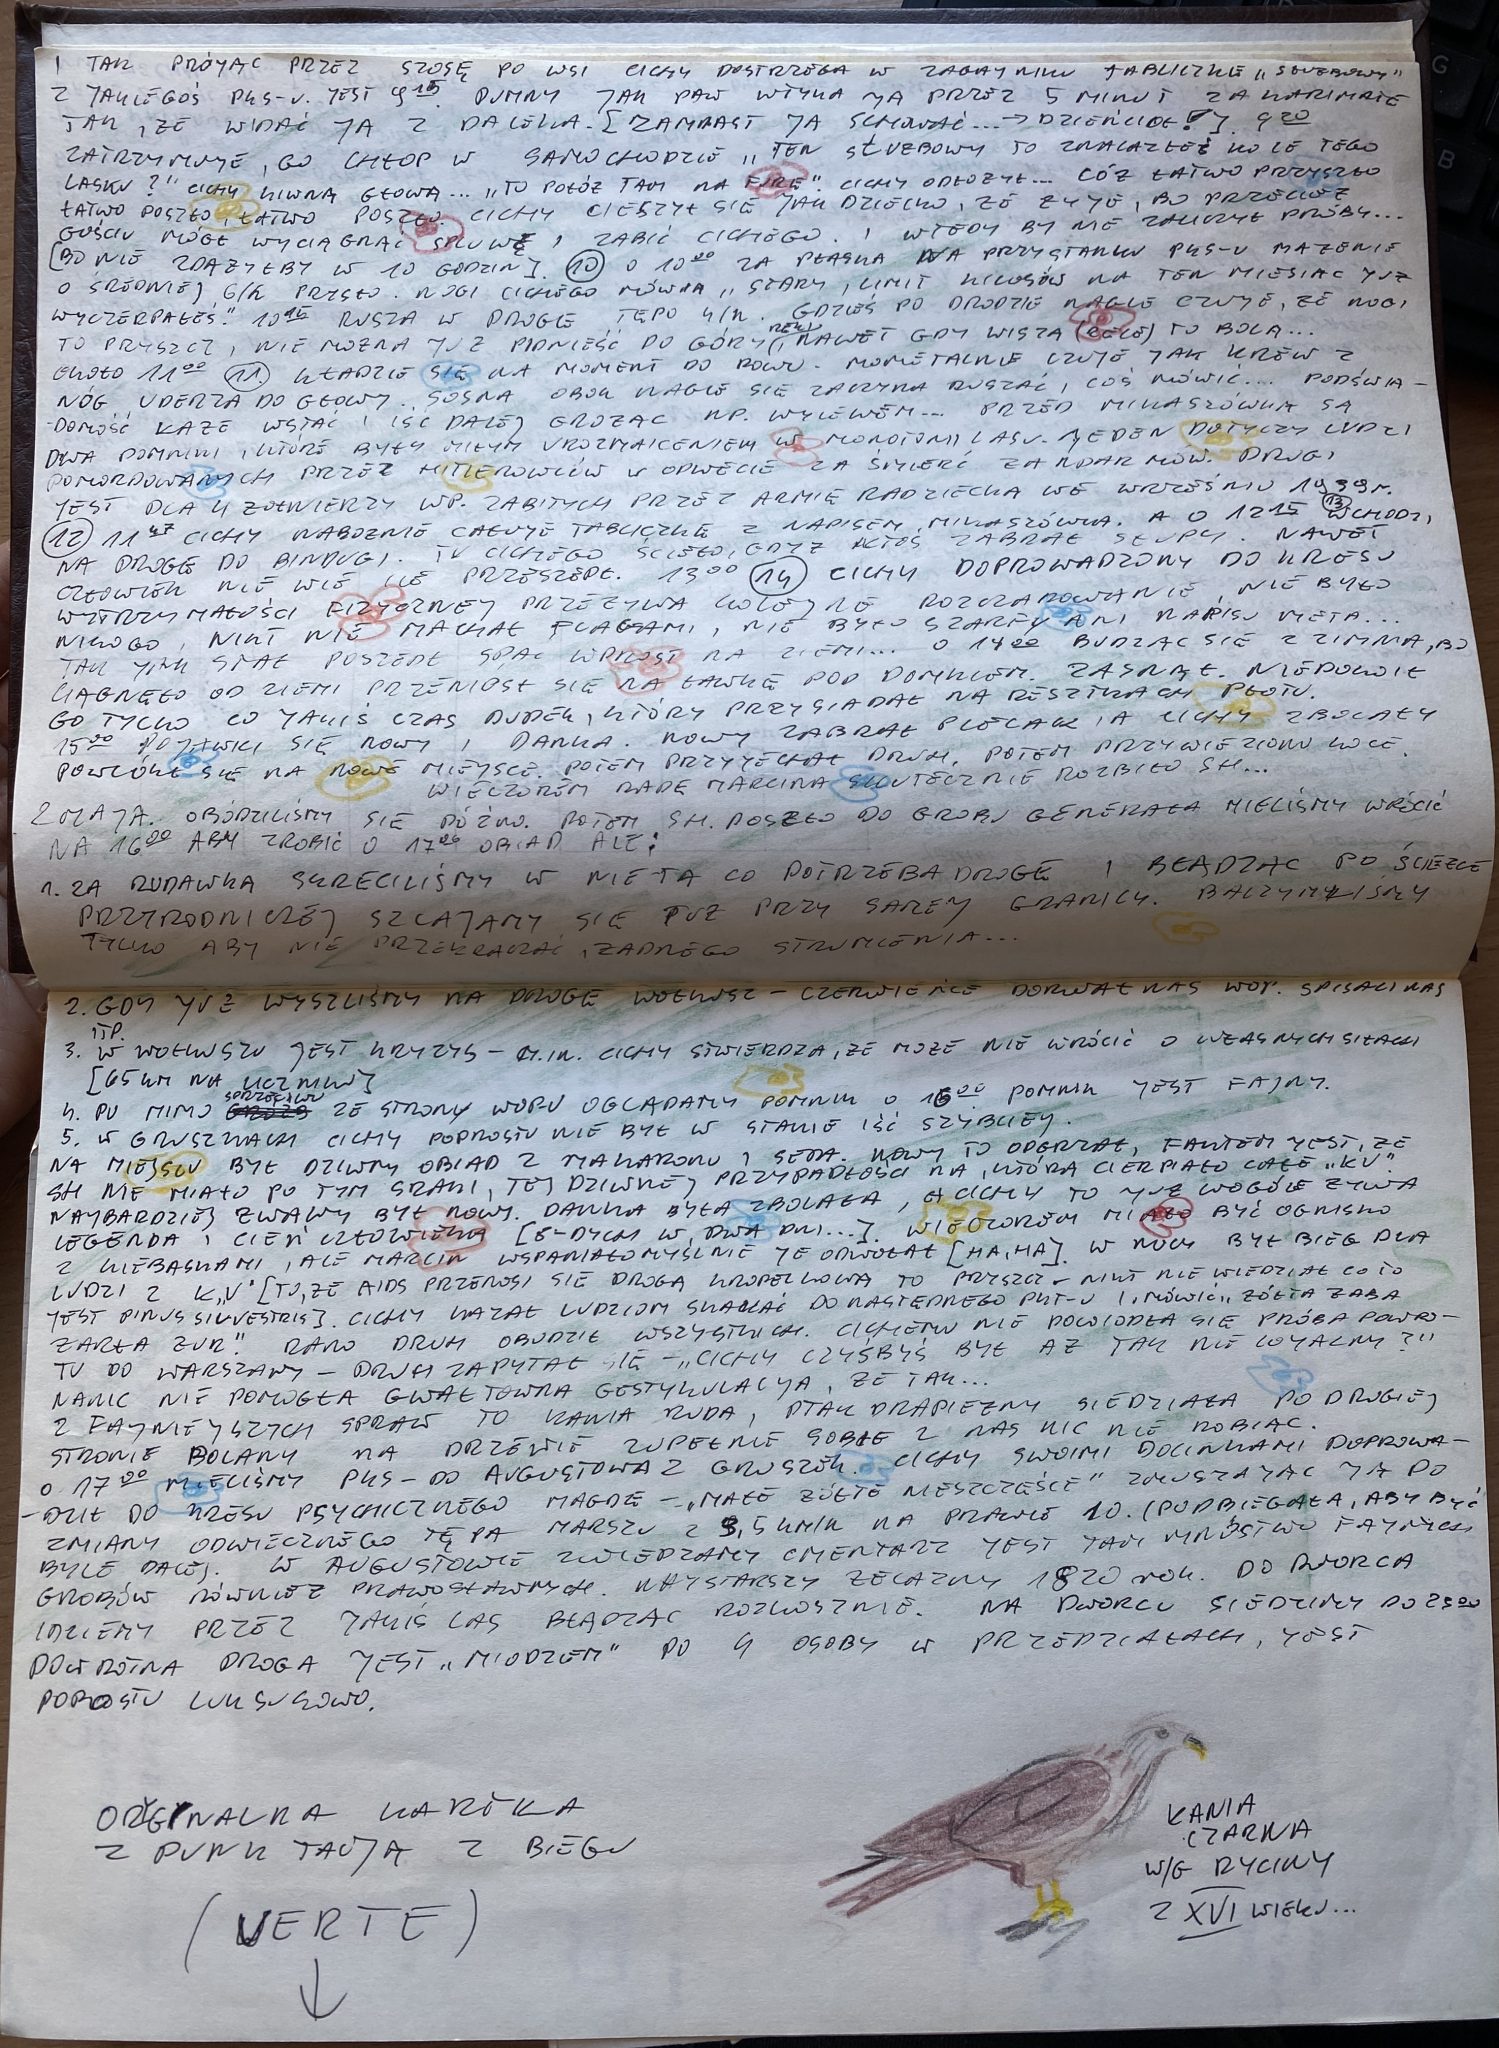 I TAK PRÓJĄC PRZEZ SZOSĘ PO WSI CICHY DOSTRZEGA W ZAGAJNIKU TABLICZKĘ „SŁUŻBOWY”
Z JAKIEGOŚ PKS-U. JEST 9 15. DUMNY JAK PAW WTYKA JĄ PRZEZ 5 MINUT ZA KARIMATĘ
TAK, ŻE WIDAĆ JĄ Z DALEKA. [ZAMIAST JĄ SCHOWAĆ... → DZIEŃCIOŁ!]. 9 20
ZATRZYMUJE, GO CHŁOP W SAMOCHODZIE „TEN SŁUŻBOWY TO ZNALAZŁEŚ KOŁO TEGO
LASKU?” CICHY KIWNĄ GŁOWĄ... „TO POŁÓŻ TAM NA FURĘ”. CICHY ODŁOŻYŁ... CÓŻ ŁATWO PRZYSZŁO
ŁATWO POSZŁO, ŁATWO POSZŁO. CICHY CIESZYŁ SIĘ JAK DZIECKO, ŻE ŻYJE, BO PRZECIEŻ
GOŚCIU MÓGŁ WYCIĄGNĄĆ SPLUWĘ I ZABIĆ CICHEGO. I WTEDY BY NIE ZALICZYŁ PRÓBY...
[BO NIE ZDĄŻYŁBY W 10 GODZIN]. 10 O 10 00 ZA PŁASKĄ NA PRZYSTANKU PKS-U MAŻENIE
O ŚREDNIEJ 6/H PRYSŁO. NOGI CICHEGO MÓWIĄ „STARY, LIMIT KILOSÓW NA TEN MIESIĄC JUŻ
WYCZERPAŁEŚ.” 10 15 RUSZA W DROGĘ TĘPO 4/H. GDZIEŚ PO DRODZE NAGLE CZUJE, ŻE NOGI
TO PRYSZCZ, NIE MOŻNA JUŻ PODNIEŚĆ DO GÓRY RĘKI, NAWET GDY WISZĄ (RĘCE) TO BOLĄ...
OKOŁO 11 00 11. KŁADZIE SIĘ NA MOMENT DO ROWU. MOMETALNIE CZUJE JAK KREW Z
NÓG UDERZA DO GŁOWY. SOSNA OBOK NAGLE SIĘ ZACZYNA RUSZAĆ, COŚ MÓWIĆ.... PODŚWIA-
-DOMOŚĆ KAŻE WSTAĆ I IŚĆ DALEJ GROŻĄC NP. WYLEWEM... PRZED MIKASZÓWKĄ SĄ
DWA POMNIKI, KTÓRE BYŁY MIŁYM UROZMAICENIEM W MONOTONII LASU. JEDEN DOTYCZY LUDZI
POMORDOWANYCH PRZEZ HITLEROWCÓW W ODWECIE ZA ŚMIERĆ ŻANDARMÓW. DRUGI
JEST DLA 4 ŻOŁNIERZY WP. ZABITYCH PRZEZ ARMIĘ RADZIECKĄ WE WRZEŚNIU 1939 r.
12 11 47 CICHY NABOŻNIE CAŁUJE TABLICZKĘ Z NAPISEM MIKASZÓWKA. A O 12 15 13 WCHODZI
NA DROGĘ DO BINDUGI. TU CICHEGO ŚCIĘŁO, GDYŻ KTOŚ ZABRAŁ SŁUPKI. NAWET
CZŁOWIEK NIE WIE ILE PRZESZEDŁ. 13 00 14 CICHY DOPROWADZONY DO KRESU
WYTRZYMAŁOŚCI FIZYCZNEJ PRZEŻYWA KOLEJNE ROZCZAROWANIE, NIE BYŁO
NIKOGO, NIKT NIE MACHAŁ FLAGAMI, NIE BYŁO SZARFY ANI NAPISU META...
TAK JAK STAŁ POSZEDŁ SPAĆ WPROST NA ZIEMI... O 14 00 BUDZĄC SIĘ Z ZIMNA, BO
CIĄGNĘŁO OD ZIEMI PRZENIÓSŁ SIĘ NA ŁAWKĘ POD DOMKIEM. ZASNĄŁ. NIEPOKOIŁ
GO TYLKO CO JAKIŚ CZAS DUDEK, KTÓRY PRZYSIADAŁ NA RESZTKACH PŁOTU.
15 00 POJAWILI SIĘ NOWY I DANKA. NOWY ZABRAŁ PLECAK, A CICHY ZBOLAŁY
POWLÓKŁ SIĘ NA NOWE MIEJSCE. POTEM PRZYJECHAŁ DRUH. POTEM PRZYWIEZIONO KOCE.
WIECZOREM RADĘ MARCINA SKUTECZNIE ROZBIŁO SH...
2 MAJA. OBÓDZILIŚMY SIĘ PÓŹNO. POTEM SH. POSZŁO DO GROBU GENERAŁA MIELIŚMY WRÓCIĆ
NA 16 00 ABY ZROBIĆ O 17 00 OBIAD ALE:
1. ZA RUDAWKĄ SKRĘCILIŚMY W NIE TĄ CO POTRZEBA DROGĘ I BŁĄDZĄC PO ŚCIEŻCE
PRZYRODNICZEJ SZLAJAMY SIĘ TUŻ PRZY SAMEJ GRANICY. BACZYMYLIŚMY
TYLKO ABY NIE PRZEKRACZAĆ, ŻADNEGO STRUMIENIA...
2. GDY JUŻ WYSZLIŚMY NA DROGĘ WOŁKUSZ – CZERWIEŃCE DORWAŁ NAS WOP. SPISALI NAS
ITP.
3. W WOŁKUSZU JEST KRYZYS – M.IN. CICHY STWIERDZA, ŻE MOŻE NIE WRÓCIĆ O WŁASNYCH SIŁACH
[65 KM NA LICZNIKU]
4. PO MIMO SPRZECIWU ZE STRONY WOPU OGLĄDAMY POMNIK O 16 00. POMNIK JEST FAJNY.
5. W GRUSZKACH CICHY POPROSTU NIE BYŁ W STANIE IŚĆ SZYBCIEJ.
NA MIEJSCU BYŁ DZIWNY OBIAD Z MAKARONU I SERA. NOWY TO ODGRZAŁ, FAKTEM JEST, ŻE
SH NIE MIAŁO PO TYM SRAKI, TEJ DZIWNEJ PRZYPADŁOŚCI NA, KTÓRĄ CIERPIAŁO CAŁE „KV”.
NAJBARDZIEJ ŻWAWY BYŁ NOWY. DANKA BYŁA ZBOLAŁA, A CICHY TO JUŻ WOGÓLE ŻYWA
LEGENDA I CIEŃ CZŁOWIEKA [6-DYCH W, DWA DNI...]. WIECZOREM MIAŁO BYĆ OGNISKO
Z KIEBASKAMI, ALE MARCIN WSPANIAŁOMYŚLNIE JE ODWOŁAŁ [HA, HA]. W NOCY BYŁ BIEG DLA
LUDZI Z K„V” [TO, ŻE AIDS PRZENOSI SIĘ DROGĄ KROPELKOWĄ TO PRYSZCZ – NIKT NIE WIEDZIAŁ CO TO
JEST PINUS SILVESTRIS]. CICHY KAZAŁ LUDZIOM SKAKAĆ DO NASTĘPNEGO PKT-U I „MÓWIĆ” „ŻÓŁTA ŻABA
ŻARŁA ŻUR”. RANO DRUH OBUDZIŁ WSZYSTKICH. CICHEMU NIE POWIODŁA SIĘ PRÓBA POWRO-
TU DO WARSZAWY – DRUH ZAPYTAŁ SIĘ – „CICHY CZYŻBYŚ BYŁ AŻ TAK NIE LOYALNY?”
NANIC NIE POMOGŁA GWAŁTOWNA GESTYKULACJA, ŻE TAK...
Z FAJNIEJSZYCH SPRAW TO KANIA RUDA, PTAK DRAPIEŻNY SIEDZIAŁA PO DRUGIEJ
STRONIE POLANY NA DRZEWIE ZUPEŁNIE SOBIE Z NAS NIC NIE ROBIĄC.
O 17 00 MIELIŚMY PKS – DO AUGUSTOWA Z GRUSZEK. CICHY SWOIMI DOCINKAMI DOPROWA-
-DZIŁ DO KRESU PSYCHICZNEGO MAGDĘ – „MAŁE ŻÓŁTE NIESZCZĘŚCIE” ZMUSZAJĄC JĄ DO
ZMIANY ODWIECZNEGO TĘPA MARSZU Z 3,5 KM/H NA PRAWIE 10. (PODBIEGAŁA, ABY BYĆ
BYLE DALEJ. W AUGUSTOWIE ZWIEDZAMY CMENTARZ JEST TAM MNÓSTWO FAJNYCH
GROBÓW RÓWNIEŻ PRAWOSŁAWNYCH. NAJSTARSZY ŻELAZNY 1820 rok. DO DWORCA
IDZIEMY PRZEZ JAKIŚ LAS BŁĄDZĄC ROZKOSZNIE. NA DWORCU SIEDZIMY DO 23 00
POWROTNA DROGA JEST „MIODZEM” PO 4 OSOBY W PRZEDZIAŁACH, JEST
POPROSTU LUKSUSOWO.
ORGINALNA KARTKA
Z PUNKTACJĄ Z BIEGU
(VERTE)
KANIA
CZARNA
W/G RYCINY
Z XVI WIEKU...